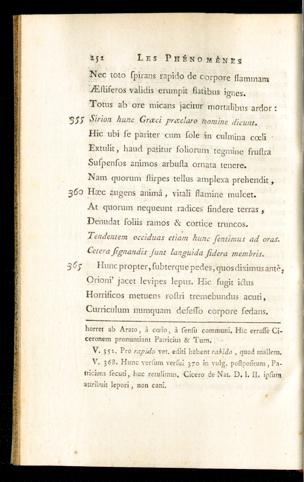 252 LES PHÉNOMÈNES
Nec toto spirans rapido de corpore flammam
Æstiferos validis erumpit flatibus ignes.
Totus ab ore micans jacitur mortalibus ardor :
355 Sirion hunc Græci præclaro nomine dicunt.
Hic ubi se pariter cum sole in culmina cœli
Extulit, haud patitur foliorum tegmine frustra
Suspensos animos arbusta ornata tenere.
Nam quorum stirpes tellus amplexa prehendit,
360 Hæc augens animâ, vitali flamine mulcet.
At quorum nequeunt radices findere terras,
Denudat foliis ramos & cortice truncos.
Tendentem occiduas etiam hunc sentimus ad oras.
Cetera signandis sunt languida sidera membris.
365 Hunc propter, subterque pedes, quos diximus antè,
Orioni' jacet levipes lepus. Hic fugit ictus
Horrificos metuens rostri tremebundus acuti,
Curriculum nunquam defesso corpore sedans.
horret ab Arato, à cœlo, à sensu communi. Hic errasse Ci-
ceronem pronuntiant Patricius & Turn.
V. 352. Pro rapido vet. editi habent rabido, quod mallem.
V. 368. Hunc versum versui 370 in vulg. postpositum, Pa-
tricium secuti, huc retulimus. Cicero de Nat. D. l. II. ipsum
attribuit lepori, non cani.